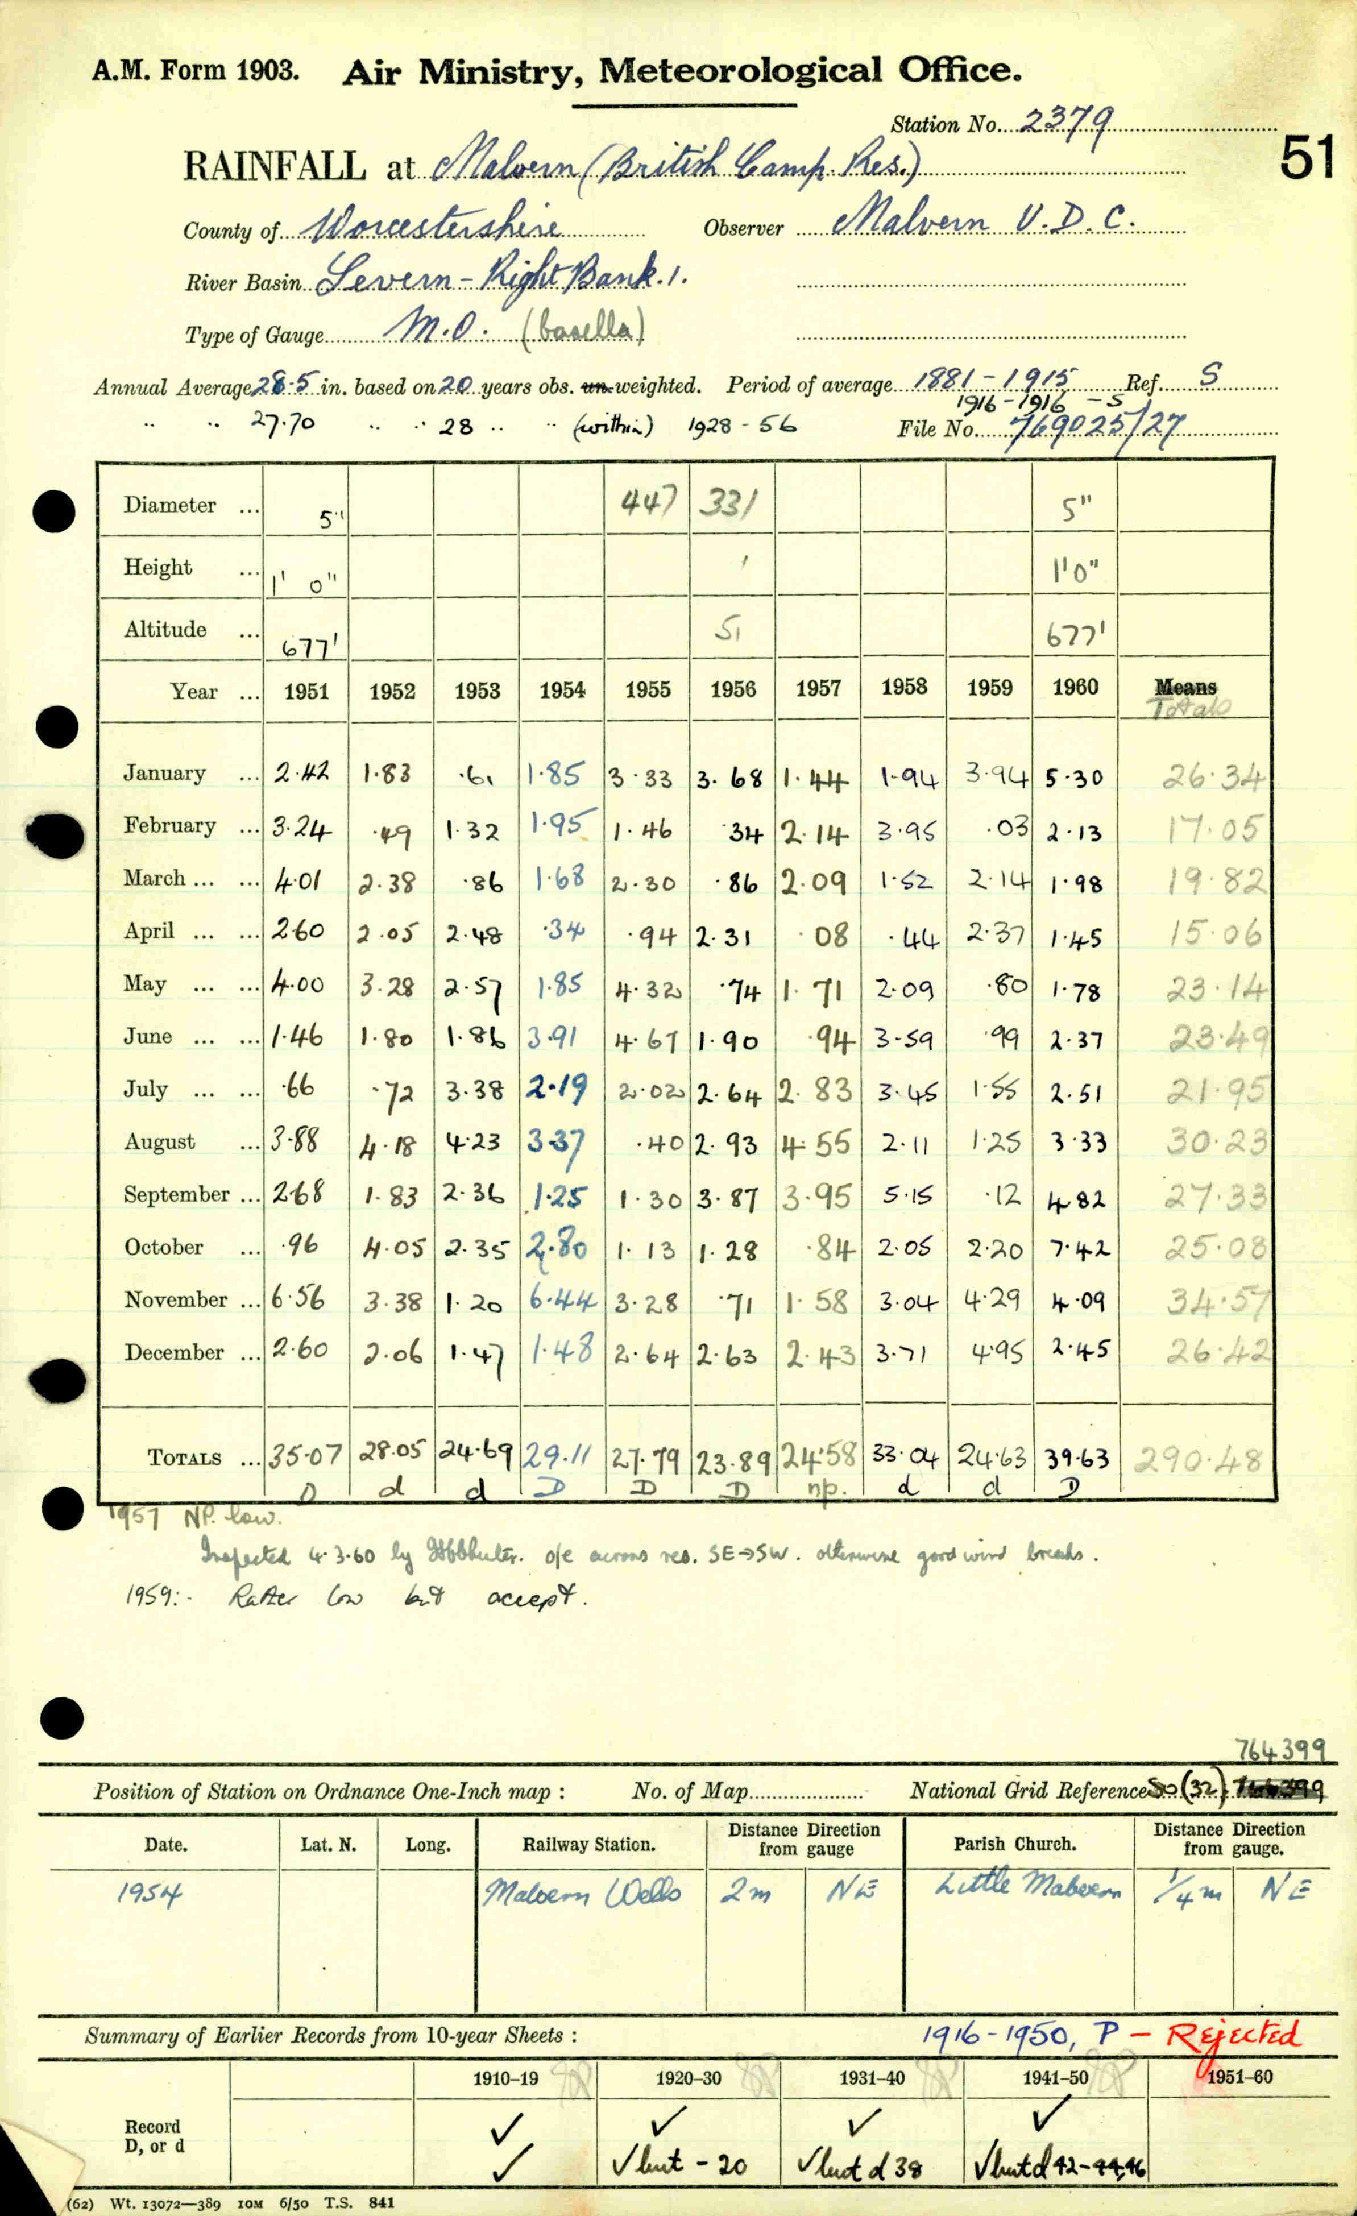 A.M. Form 1903. Air Ministry, Meteorological Office.
Station No. 2379
51
RAINFALL at Malvern (British Camp. Res.)
County of Worcestershire Observer Malvern U.D.C.
River Basin Severn - Right Bank. 1.
Type of Gauge M.O. (Casella)
Annual Average 28.5 in. based on 20 years obs. un-weighted. Period of average 1881-1915 Ref. S
1916-1916 - S
" " 27.70 " " 28 " " (within) 1928-56 File No. 769025/27
Diameter ... 5" 447 331 5"
Height ... 1' 0" ' 1'0"
Altitude ... 677' 51 677'
Year ... 1951 1952 1953 1954 1955 1956 1957 1958 1959 1960 Means
Totals
January ... 2.42 1.83 .61 1.85 3.33 3.68 1.44 1.94 3.94 5.30 26.34
February ... 3.24 .49 1.32 1.95 1.46 34 2.14 3.95 .03 2.13 17.05
March ... ... 4.01 2.38 .86 1.68 2.30 .86 2.09 1.52 2.14 1.98 19.82
April ... ... 2.60 2.05 2.48 .34 .94 2.31 .08 .44 2.37 1.45 15.06
May ... ... 4.00 3.28 2.57 1.85 4.32 .74 1.71 2.09 .80 1.78 23.14
June ... ... 1.46 1.80 1.86 3.91 4.67 1.90 .94 3.59 .99 2.37 23.49
July ... ... .66 .72 3.38 2.19 2.02 2.64 2.83 3.45 1.55 2.51 21.95
August ... 3.88 4.18 4.23 3.37 .40 2.93 4.55 2.11 1.25 3.33 30.23
September ... 2.68 1.83 2.36 1.25 1.30 3.87 3.95 5.15 .12 4.82 27.33
October ... .96 4.05 2.35 2.80 1.13 1.28 .84 2.05 2.20 7.42 25.08
November ... 6.56 3.38 1.20 6.44 3.28 .71 1.58 3.04 4.29 4.09 34.57
December ... 2.60 2.06 1.47 1.48 2.64 2.63 2.43 3.71 4.95 2.45 26.42
TOTALS ... 35.07 28.05 24.69 29.11 27.79 23.89 24.58 33.04 24.63 39.63 290.48
D d d D D D np. d d D
1957 NP. low.
Inspected 4.3.60 by o/e across res. SE→SW. otherwise good wind breaks.
1959:- Rather low but accept.
764399
Position of Station on Ordnance One-Inch map : No. of Map National Grid Reference SO (32)
Date. Lat. N. Long. Railway Station. Distance Direction from gauge Parish Church. Distance Direction from gauge.
1954 Malvern Wells 2m NE Little Malvern 1/4 m NE
Summary of Earlier Records from 10-year Sheets : 1916-1950, P - Rejected
1910–19 1920–30 1931–40 1941–50 1951–60
Record ✓ ✓ ✓ ✓
D, or d ✓ ✓ but - 20 ✓ but d 38 ✓ but d 42-44,46
(62) Wt. 13072—389 10M 6/50 T.S. 841